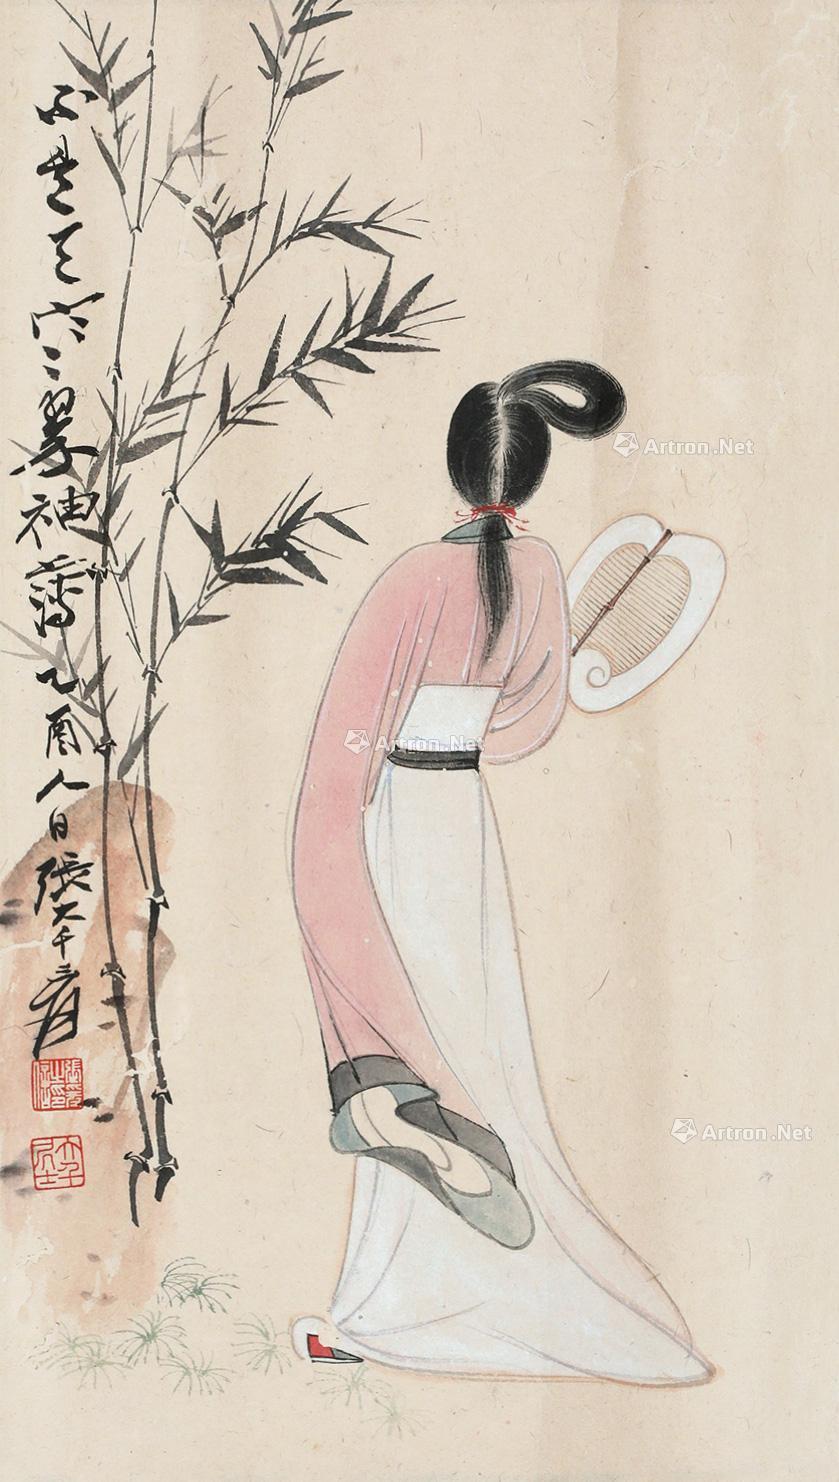 不是天寒翠袖薄 乙酉人日 張大千爰
大千居士
Artron.Net
Artron.Net
Artron.Net